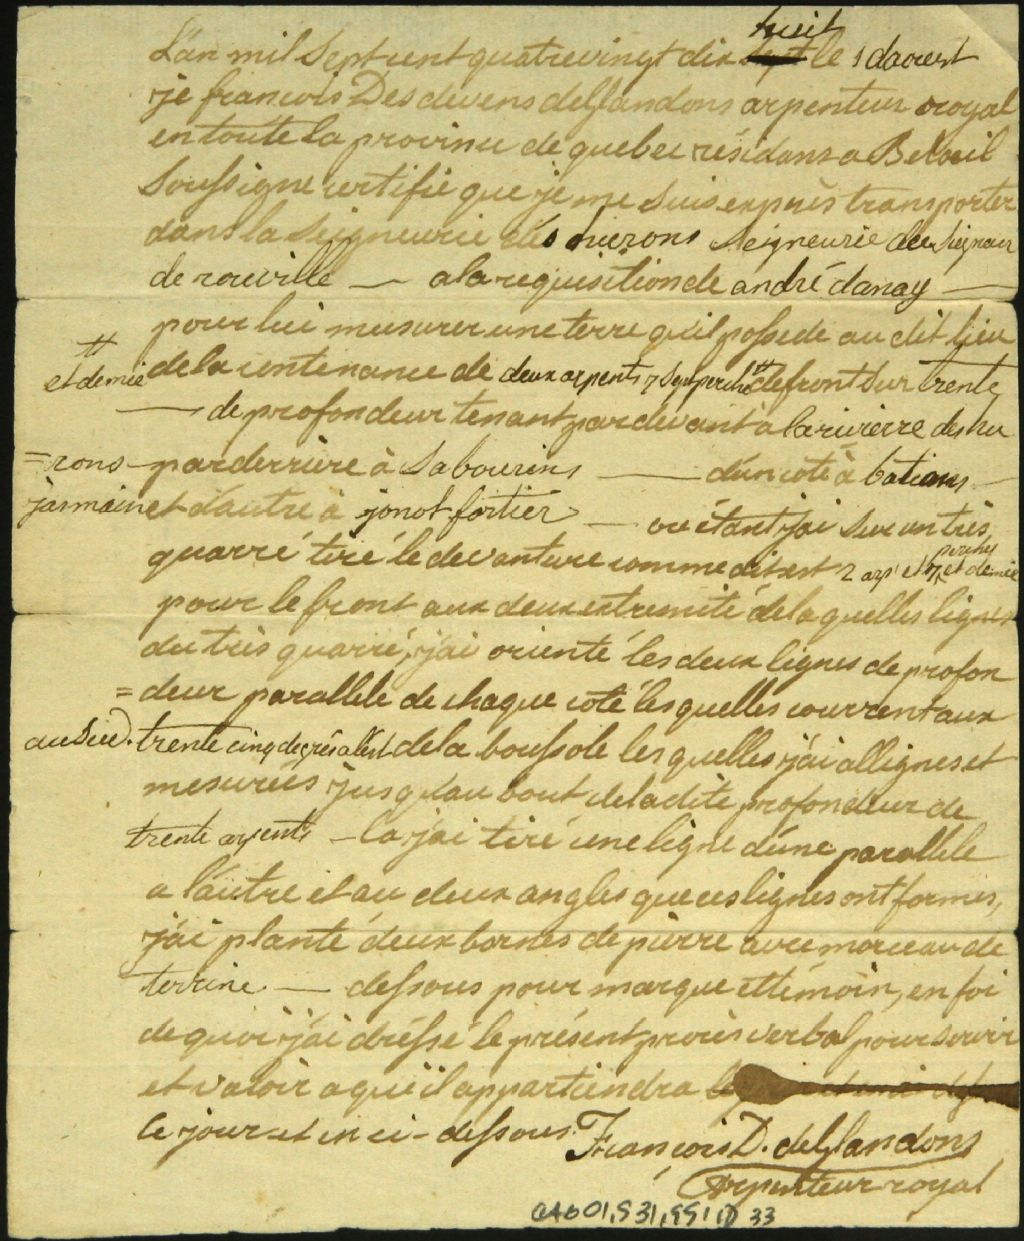 huit
L'an mil Sept cent quatrevingt dix sept le 1 daoust
je francois Desdevens delglandons arpenteur royal
en toute la province de quebec résidans a Beloeil
Soussigné certifie que je me suis exprès transporter
dans la Seigneurie dés hurons seigneurie du Signeur
de rouville — a la requisition de andré danay —
pour lui mesurer une terre qu'il possede au dit lieu
et demie de la contenance de deux arpents 7 Sept perche de front Sur trente
— de profondeur tenant par devant à la rivierre des hu
=rons par derriere à Sabourins — d'un coté à batians
jasmain et d'autre à jonot fortier — ou étant j'ai Sur un très
quarré tiré le devanture comme dit est 2 arp et 7 perches et demie
pour le front aux deux extremité de laquelles lignes
du très quarré, j'ai orienté les deux lignes de profon
=deur parallele de chaque coté les quelles courrent aux
au Sud. trente cinq degrés a l'est de la boussole les quelles j'ai allignes et
mesurées jusqu'au bout de la dite profondeur de
trente arpents — la j'ai tiré une ligne d'une parallele
a l'autre et au deux angles que ces lignes ont formes,
j'ai planté deux bornes de pierre avec morceau de
terrine — dessous pour marque et témoin, en foi
de quoi j'ai dréssé le présent procès verbal pour servir
et valoir a qu'il appartiendra
le jour et en ci-dessous.
François D. delglandons
Arpenteur royal
CA601,S31,SS1,D 33